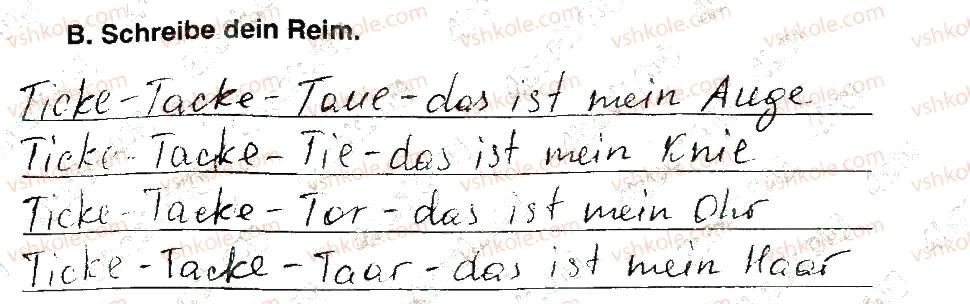 B. Schreibe dein Reim.
Ticke - Tacke - Taue - das ist mein Auge
Ticke - Tacke - Tie - das ist mein Knie
Ticke - Tacke - Tor - das ist mein Ohr
Ticke - Tacke - Taar - das ist mein Haar